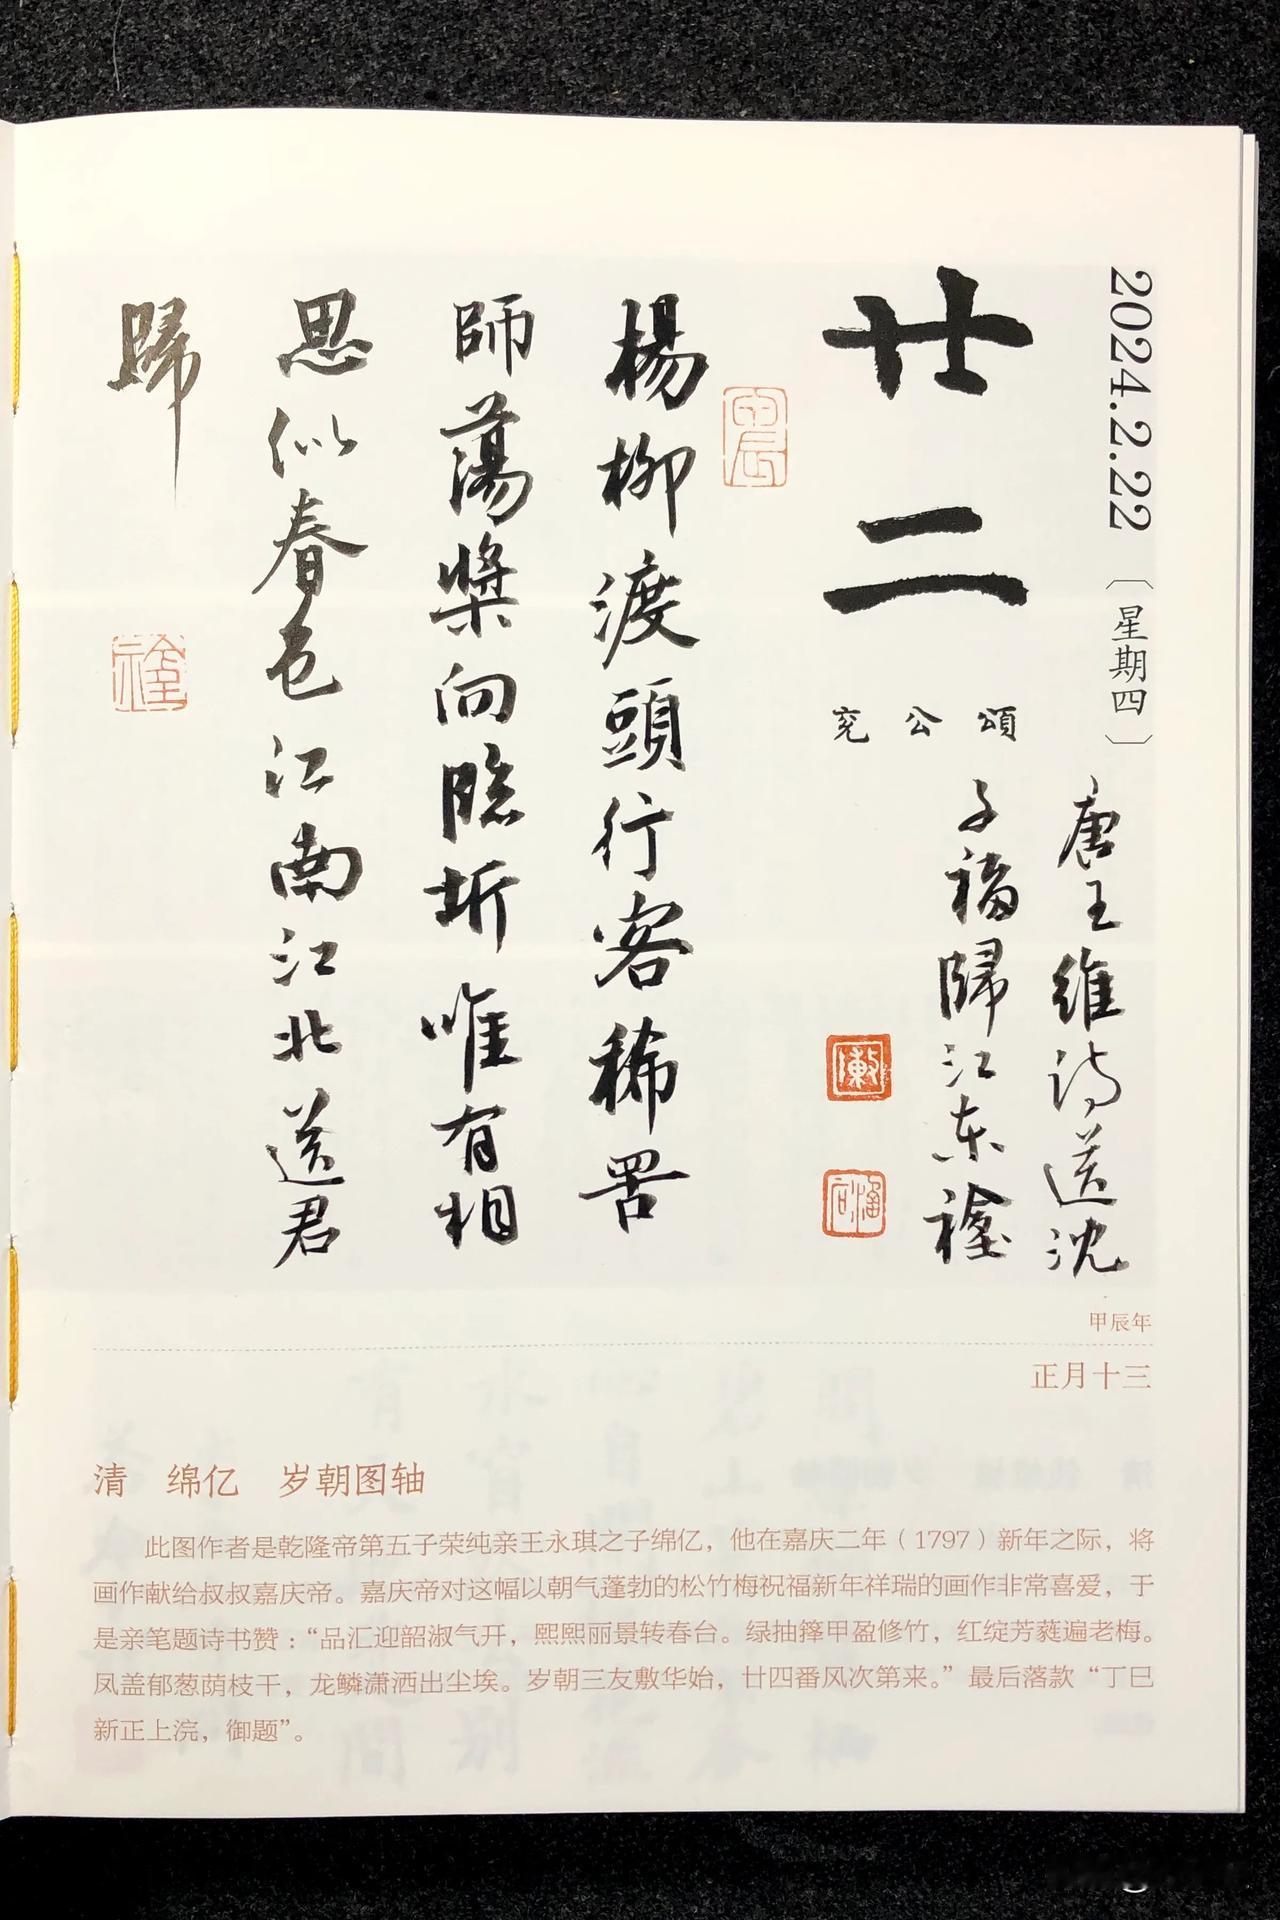 2024.2.22〔星期四〕
廿二
兖公頌
唐王維诗送沈
子福歸江东
楊柳渡頭行客稀罟
師蕩槳向臨圻唯有相
思似春色江南江北送君
歸
甲辰年
正月十三
清 绵亿 岁朝图轴
此图作者是乾隆帝第五子荣纯亲王永琪之子绵亿，他在嘉庆二年（1797）新年之际，将
画作献给叔叔嘉庆帝。嘉庆帝对这幅以朝气蓬勃的松竹梅祝福新年祥瑞的画作非常喜爱，于
是亲笔题诗书赞：“品汇迎韶淑气开，熙熙丽景转春台。绿抽箨甲盈修竹，红绽芳蕤遍老梅。
凤盖郁葱荫枝干，龙鳞潇洒出尘埃。岁朝三友敷华始，廿四番风次第来。”最后落款“丁巳
新正上浣，御题”。